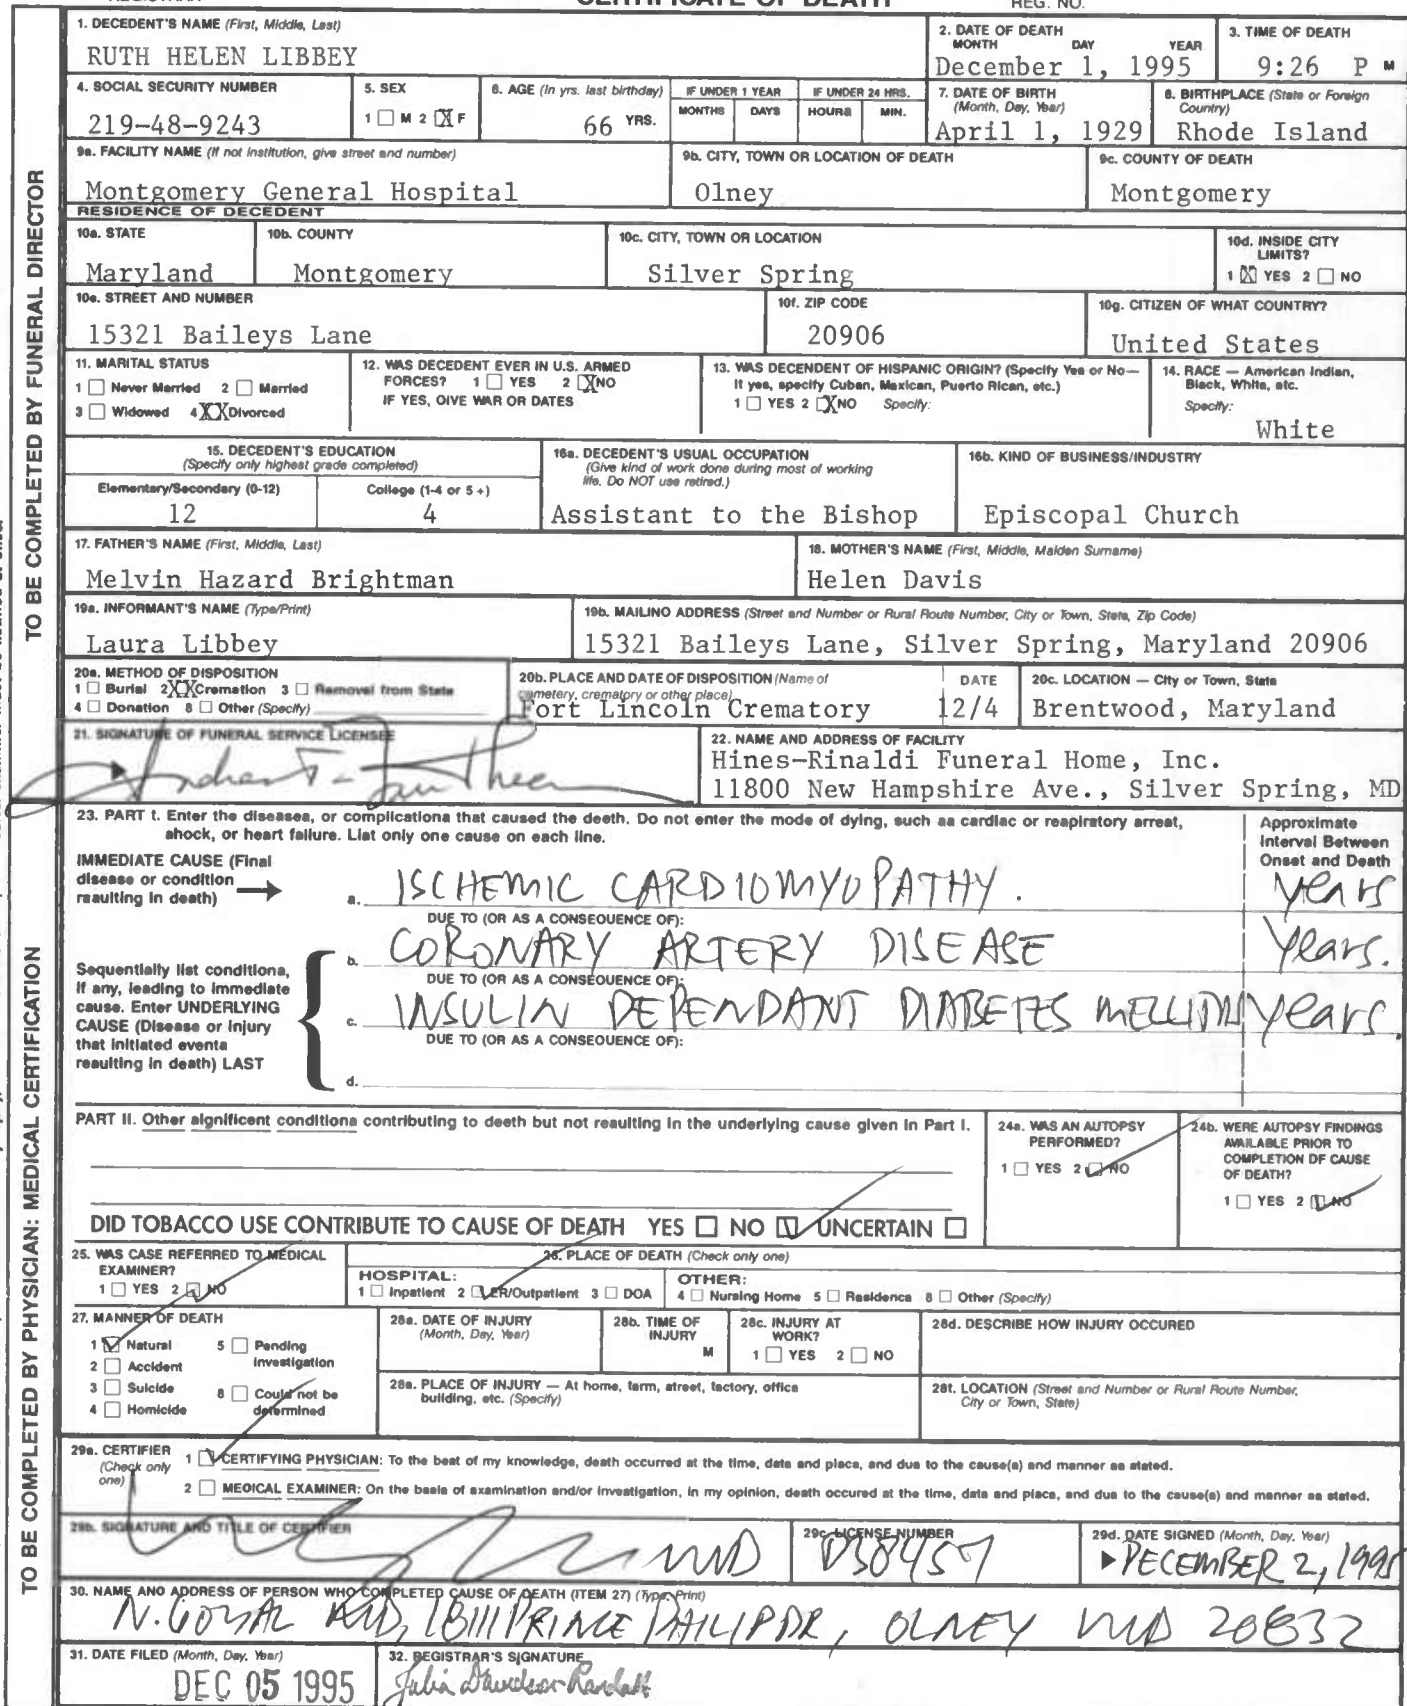 CERTIFICATE OF DEATH
REG. NO.
1. DECEDENT'S NAME (First, Middle, Last)
RUTH HELEN LIBBEY
2. DATE OF DEATH
MONTH DAY YEAR
December 1, 1995
3. TIME OF DEATH
9:26 P M
4. SOCIAL SECURITY NUMBER
219-48-9243
5. SEX
1 ☐ M 2 ☒ F
6. AGE (In yrs. last birthday)
66 YRS.
IF UNDER 1 YEAR
MONTHS DAYS
IF UNDER 24 HRS.
HOURS MIN.
7. DATE OF BIRTH
(Month, Day, Year)
April 1, 1929
8. BIRTHPLACE (State or Foreign
Country)
Rhode Island
9a. FACILITY NAME (If not institution, give street and number)
Montgomery General Hospital
9b. CITY, TOWN OR LOCATION OF DEATH
Olney
9c. COUNTY OF DEATH
Montgomery
RESIDENCE OF DECEDENT
10a. STATE
Maryland
10b. COUNTY
Montgomery
10c. CITY, TOWN OR LOCATION
Silver Spring
10d. INSIDE CITY
LIMITS?
1 ☒ YES 2 ☐ NO
10e. STREET AND NUMBER
15321 Baileys Lane
10f. ZIP CODE
20906
10g. CITIZEN OF WHAT COUNTRY?
United States
11. MARITAL STATUS
1 ☐ Never Married 2 ☐ Married
3 ☐ Widowed 4 XX Divorced
12. WAS DECEDENT EVER IN U.S. ARMED
FORCES? 1 ☐ YES 2 ☒ NO
IF YES, GIVE WAR OR DATES
13. WAS DECENDENT OF HISPANIC ORIGIN? (Specify Yes or No—
If yes, specify Cuban, Mexican, Puerto Rican, etc.)
1 ☐ YES 2 ☒ NO Specify:
14. RACE — American Indian,
Black, White, etc.
Specify:
White
15. DECEDENT'S EDUCATION
(Specify only highest grade completed)
Elementary/Secondary (0-12)
12
College (1-4 or 5 +)
4
16a. DECEDENT'S USUAL OCCUPATION
(Give kind of work done during most of working
life. Do NOT use retired.)
Assistant to the Bishop
16b. KIND OF BUSINESS/INDUSTRY
Episcopal Church
17. FATHER'S NAME (First, Middle, Last)
Melvin Hazard Brightman
18. MOTHER'S NAME (First, Middle, Maiden Surname)
Helen Davis
19a. INFORMANT'S NAME (Type/Print)
Laura Libbey
19b. MAILING ADDRESS (Street and Number or Rural Route Number, City or Town, State, Zip Code)
15321 Baileys Lane, Silver Spring, Maryland 20906
20a. METHOD OF DISPOSITION
1 ☐ Burial 2 XX Cremation 3 ☐ Removal from State
4 ☐ Donation 8 ☐ Other (Specify)
20b. PLACE AND DATE OF DISPOSITION (Name of
cemetery, crematory or other place)
Fort Lincoln Crematory
DATE
12/4
20c. LOCATION — City or Town, State
Brentwood, Maryland
21. SIGNATURE OF FUNERAL SERVICE LICENSEE
22. NAME AND ADDRESS OF FACILITY
Hines-Rinaldi Funeral Home, Inc.
11800 New Hampshire Ave., Silver Spring, MD
TO BE COMPLETED BY FUNERAL DIRECTOR
23. PART I. Enter the diseases, or complications that caused the death. Do not enter the mode of dying, such as cardiac or respiratory arrest,
shock, or heart failure. List only one cause on each line.
Approximate
Interval Between
Onset and Death
IMMEDIATE CAUSE (Final
disease or condition
resulting in death)
a. ISCHEMIC CARDIOMYOPATHY. years
DUE TO (OR AS A CONSEQUENCE OF):
b. CORONARY ARTERY DISEASE years.
Sequentially list conditions,
if any, leading to immediate
cause. Enter UNDERLYING
CAUSE (Disease or injury
that initiated events
resulting in death) LAST
DUE TO (OR AS A CONSEQUENCE OF):
c. INSULIN DEPENDANT DIABETES MELLITUS years.
DUE TO (OR AS A CONSEQUENCE OF):
d.
PART II. Other significant conditions contributing to death but not resulting in the underlying cause given in Part I.
24a. WAS AN AUTOPSY
PERFORMED?
1 ☐ YES 2 ☑ NO
24b. WERE AUTOPSY FINDINGS
AVAILABLE PRIOR TO
COMPLETION OF CAUSE
OF DEATH?
1 ☐ YES 2 ☑ NO
DID TOBACCO USE CONTRIBUTE TO CAUSE OF DEATH YES ☐ NO ☑ UNCERTAIN ☐
25. WAS CASE REFERRED TO MEDICAL
EXAMINER?
1 ☐ YES 2 ☑ NO
26. PLACE OF DEATH (Check only one)
HOSPITAL:
1 ☐ Inpatient 2 ☑ ER/Outpatient 3 ☐ DOA
OTHER:
4 ☐ Nursing Home 5 ☐ Residence 8 ☐ Other (Specify)
27. MANNER OF DEATH
1 ☑ Natural 5 ☐ Pending
investigation
2 ☐ Accident
3 ☐ Suicide 8 ☐ Could not be
determined
4 ☐ Homicide
28a. DATE OF INJURY
(Month, Day, Year)
28b. TIME OF
INJURY
M
28c. INJURY AT
WORK?
1 ☐ YES 2 ☐ NO
28d. DESCRIBE HOW INJURY OCCURED
28e. PLACE OF INJURY — At home, farm, street, factory, office
building, etc. (Specify)
28f. LOCATION (Street and Number or Rural Route Number,
City or Town, State)
29a. CERTIFIER
(Check only
one)
1 ☑ CERTIFYING PHYSICIAN: To the best of my knowledge, death occurred at the time, date and place, and due to the cause(s) and manner as stated.
2 ☐ MEDICAL EXAMINER: On the basis of examination and/or investigation, in my opinion, death occured at the time, date and place, and due to the cause(s) and manner as stated.
29b. SIGNATURE AND TITLE OF CERTIFIER
MD
29c. LICENSE NUMBER
D38457
29d. DATE SIGNED (Month, Day, Year)
DECEMBER 2, 1995
30. NAME AND ADDRESS OF PERSON WHO COMPLETED CAUSE OF DEATH (ITEM 27) (Type, Print)
N. GOYAL MD, 18111 PRINCE PHILIP DR, OLNEY MD 20832
31. DATE FILED (Month, Day, Year)
DEC 05 1995
32. REGISTRAR'S SIGNATURE
Julia Davidson-Randall
TO BE COMPLETED BY PHYSICIAN: MEDICAL CERTIFICATION